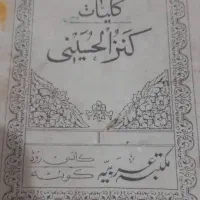 کلیات
کنز الحسینی
مکتبہ عربیہ
کانسی روڈ
کوئٹہ